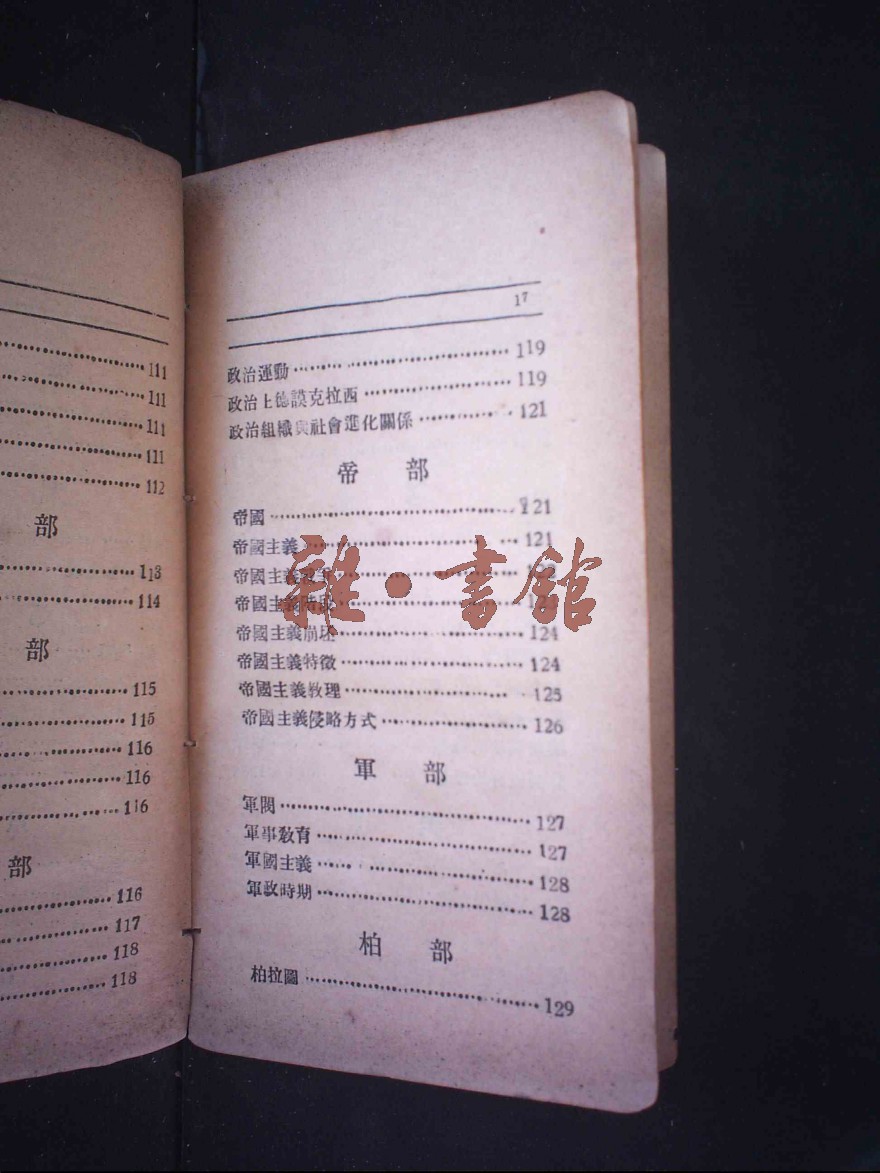 111
111
111
111
112
部
113
114
部
115
115
116
116
116
部
116
117
118
118
17
政治運動 119
政治上德謨克拉西 119
政治組織與社會進化關係 121
帝 部
帝國 121
帝國主義 121
帝國主義
帝國主義階段
帝國主義崩坯 124
帝國主義特徵 124
帝國主義教理 125
帝國主義侵略方式 126
軍 部
軍閥 127
軍事教育 127
軍國主義 128
軍政時期 128
柏 部
柏拉圖 129
雜·書館